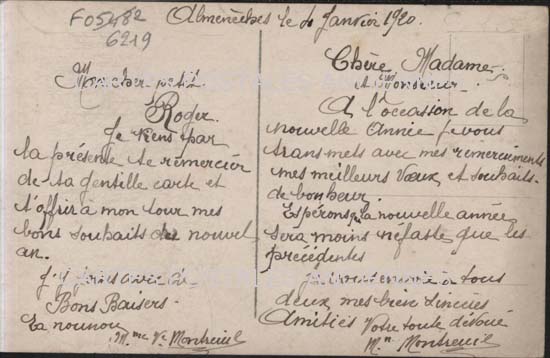 F05482
6219
Almenèches le 4 Janvier 1920.
Mon cher petit
Roger.
Je viens par
ta présente te remercier
de ta gentille carte et
t'offrir à mon tour mes
bons souhaits du nouvel
an.
Bons Baisers.
Ta nounou
Mme Ve Montreuil
Chère Madame
et Monsieur
A l'occasion de la
nouvelle année je vous
transmets avec mes remerciements
mes meilleurs vœux et souhaits
de bonheur.
Espérons que la nouvelle année
sera moins néfaste que les
précédentes
je vous envoie à tous
deux mes bien sincères
Amitiés Votre toute dévouée
Mme Montreuil